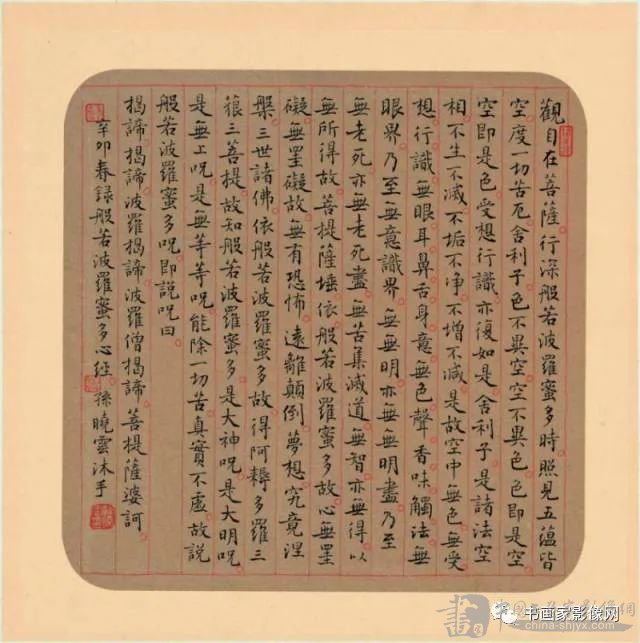 觀自在菩薩行深般若波羅蜜多時照見五蘊皆
空度一切苦厄舍利子色不異空空不異色色即是空
空即是色受想行識亦復如是舍利子是諸法空
相不生不滅不垢不淨不增不減是故空中無色無受
想行識無眼耳鼻舌身意無色聲香味觸法無
眼界乃至無意識界無無明亦無無明盡乃至
無老死亦無老死盡無苦集滅道無智亦無得以
無所得故菩提薩埵依般若波羅蜜多故心無罣
礙無罣礙故無有恐怖遠離顛倒夢想究竟涅
槃三世諸佛依般若波羅蜜多故得阿耨多羅三
藐三菩提故知般若波羅蜜多是大神呪是大明呪
是無上呪是無等等呪能除一切苦真實不虛故說
般若波羅蜜多呪即說呪曰
揭諦揭諦波羅揭諦波羅僧揭諦菩提薩婆訶
辛卯春録般若波羅蜜多心經 孫曉雲沐手
书画家影像网
www.china-shjyx.com